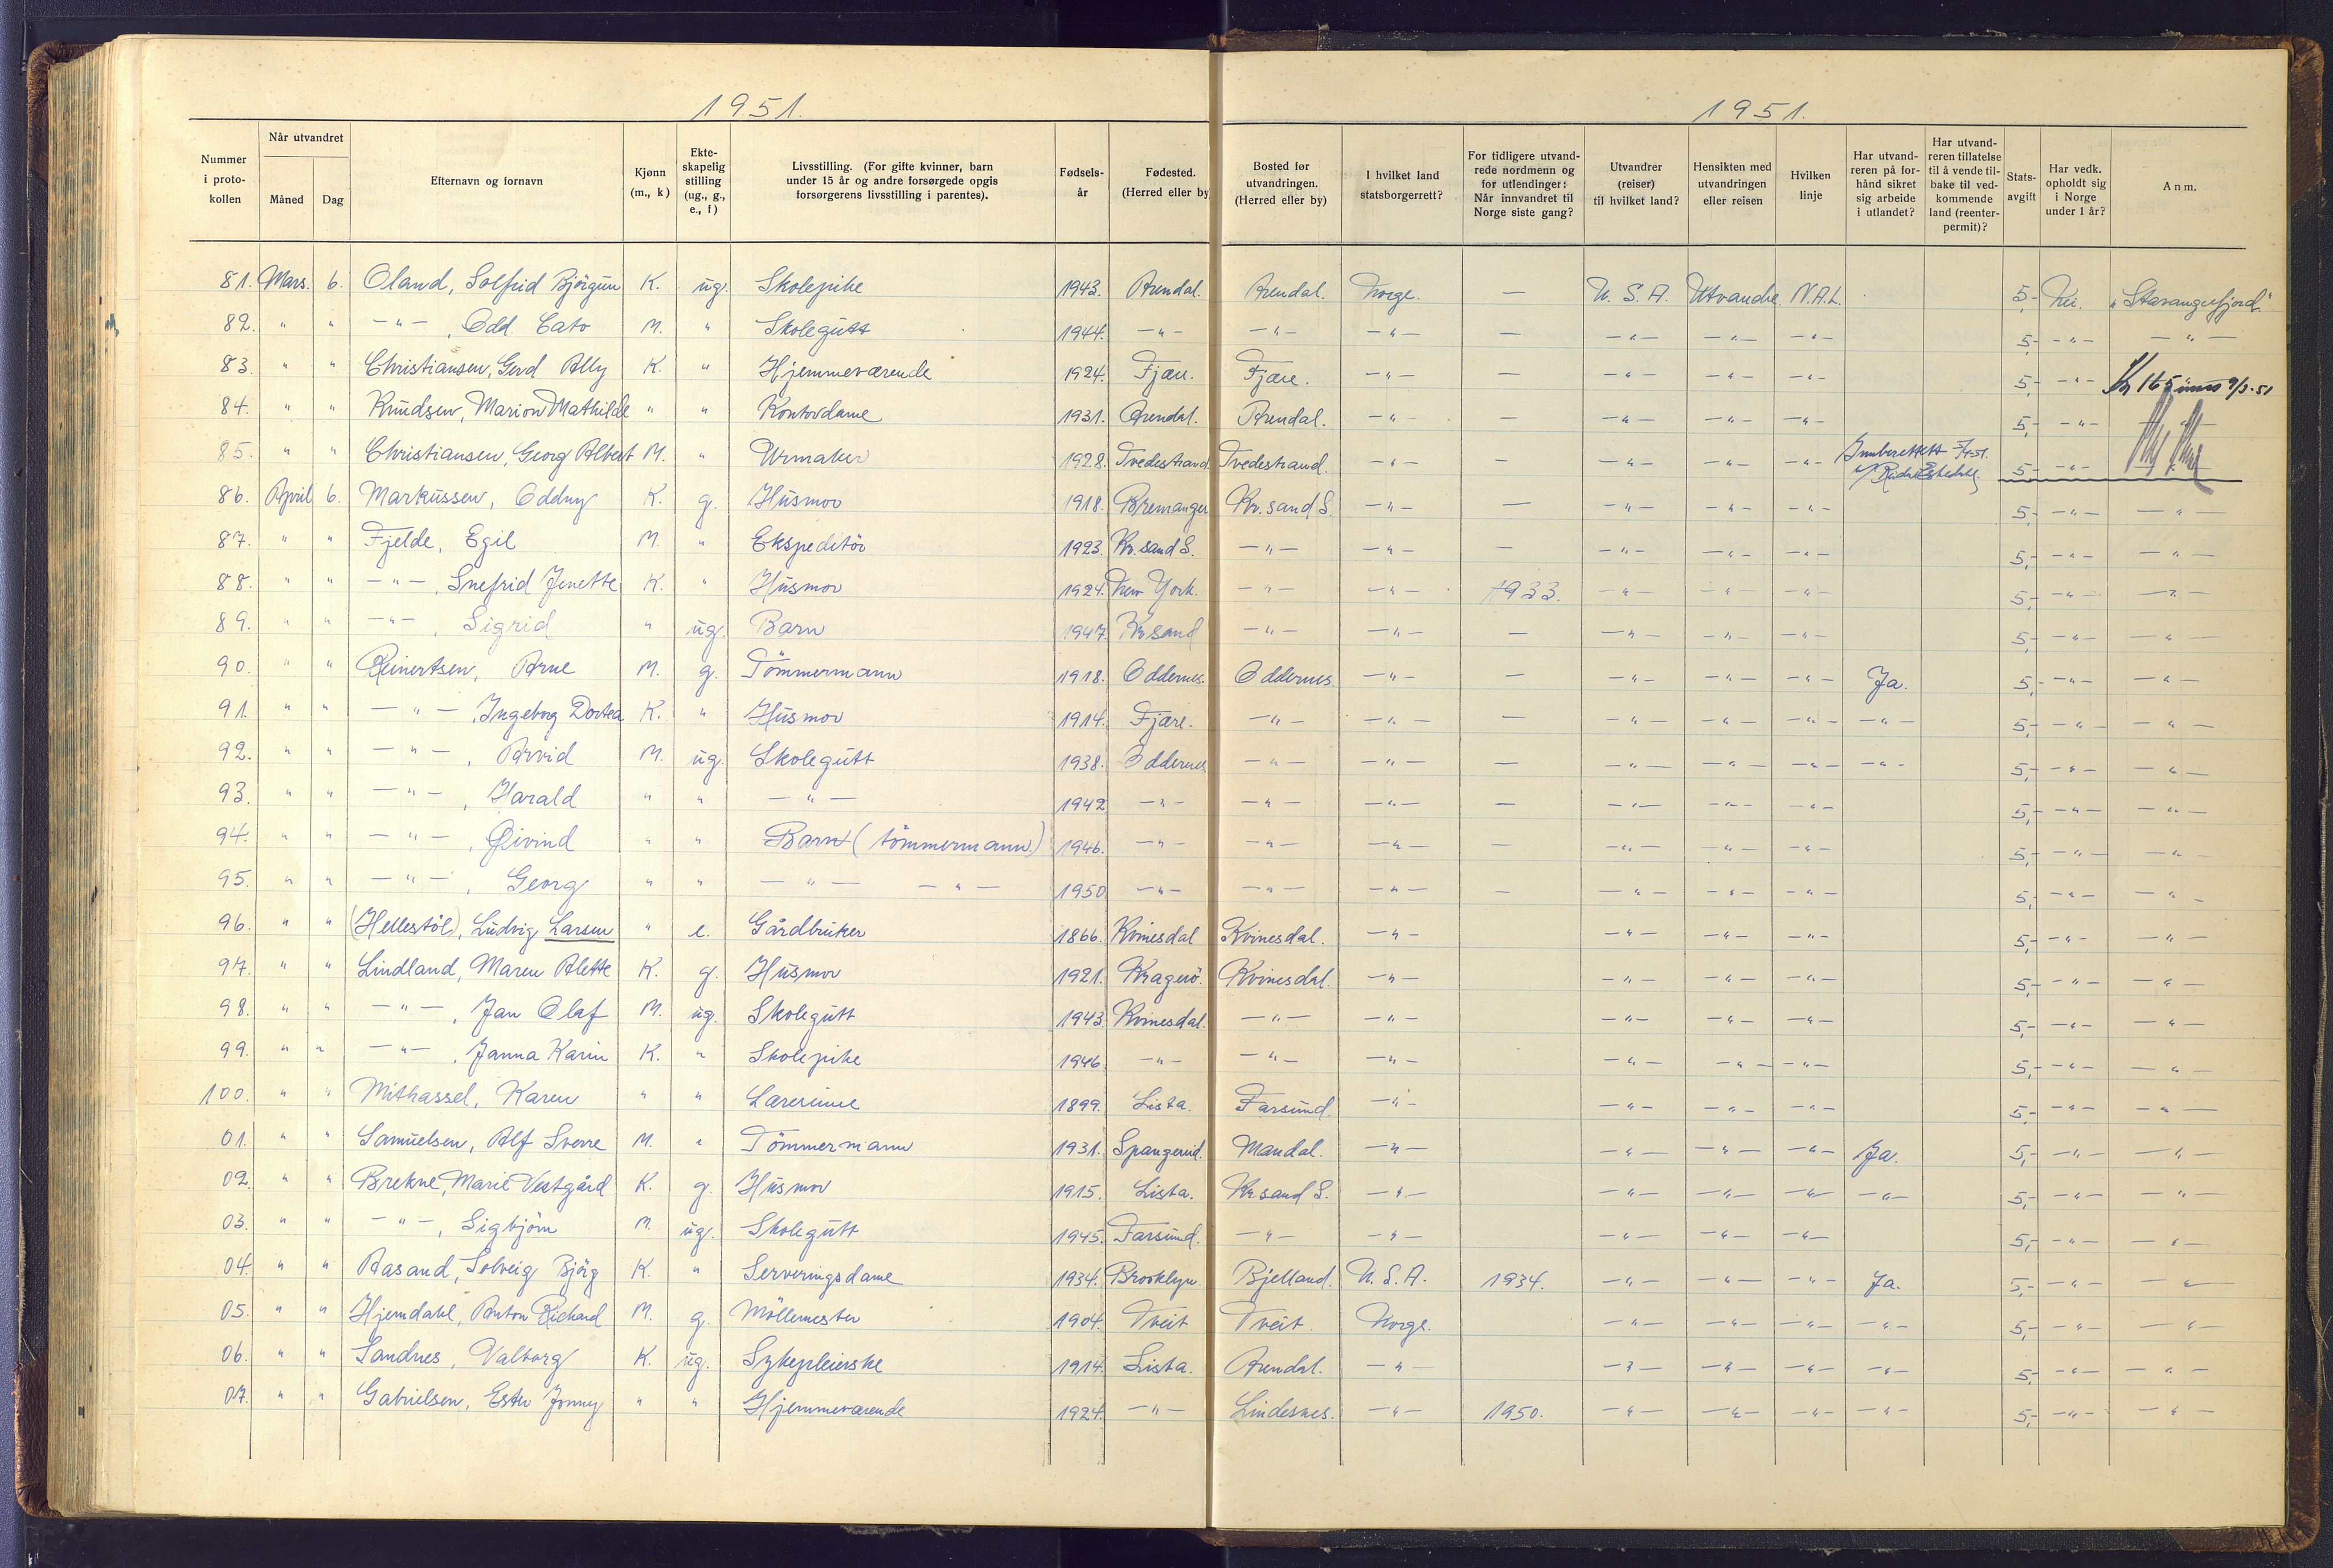 1951.
1951.
Nummer i proto-kollen | Når utvandret Måned | Dag | Efternavn og fornavn | Kjønn (m., k) | Ekte-skapelig stilling (ug., g., e., f) | Livsstilling. (For gifte kvinner, barn under 15 år og andre forsørgede opgis forsørgerens livsstilling i parentes). | Fødsels-år | Fødested. (Herred eller by | Bosted før utvandringen. (Herred eller by) | I hvilket land statsborgerrett? | For tidligere utvand-rede nordmenn og for utlendinger: Når innvandret til Norge siste gang? | Utvandrer (reiser) til hvilket land? | Hensikten med utvandringen eller reisen | Hvilken linje | Har utvand-reren på for-hånd sikret sig arbeide i utlandet? | Har utvand-reren tillatelse til å vende til-bake til ved-kommende land (reenter-permit)? | Stats-avgift | Har vedk. opholdt sig i Norge under 1 år? | Anm.
81. Mars. 6. Oland, Solfrid Bjørgun K. ug. Skolepike 1943. Arendal. Arendal. Norge. — U.S.A. Utvandre N.A.L. 5,- Nei. "Stavangerfjord."
82. " " —"— , Odd Cato M. " Skolegutt 1944. —"— —"— —"— — —"— —"— —"— 5,- —"— —"—
83. " " Christiansen, Gerd Ally K. " Hjemmeværende 1924. Fjære. Fjære. —"— — —"— —"— —"— 5,- —"— Kr 165 9/3-51
84. " " Knudsen, Marion Mathilde " " Kontordame 1931. Arendal. Arendal. —"— — —"— —"— —"— 5,- —"—
85. " " Christiansen, Georg Albert M. " Urmaker 1928. Tvedestrand. Tvedestrand. —"— — —"— —"— —"— 5,- —"—
86. April 6. Markussen, Oddny K. g. Husmor 1918. Bremanger Kr.sand S. —"— — —"— —"— —"— 5,- —"— —"—
87. " " Fjelde, Egil M. " Ekspeditør 1923. Kr.sand S. —"— —"— — —"— —"— —"— 5,- —"— —"—
88. " " —"— , Snefrid Jenette K. " Husmor 1924. New York. —"— —"— 1933. —"— —"— —"— 5,- —"— —"—
89. " " —"— , Sigrid " ug. Barn 1947. Kr.sand —"— —"— — —"— —"— —"— 5,- —"— —"—
90. " " Reinertsen, Arne M. g. Tömmermann 1918. Oddernes. Oddernes. —"— — —"— —"— —"— Ja. 5,- —"— —"—
91. " " —"— , Ingeborg Dortea K. " Husmor 1914. Fjære. —"— —"— — —"— —"— —"— —"— 5,- —"— —"—
92. " " —"— , Arvid M. ug. Skolegutt 1938. Oddernes —"— —"— — —"— —"— —"— —"— 5,- —"— —"—
93. " " —"— , Harald " " —"— 1942 —"— —"— —"— — —"— —"— —"— 5,- —"— —"—
94. " " —"— , Øivind " " Barn (tömmermann.) 1946. —"— —"— —"— — —"— —"— —"— 5,- —"— —"—
95. " " —"— , Georg " " —"— —"— 1950 —"— —"— —"— — —"— —"— —"— 5,- —"— —"—
96. " " (Hellestöl), Ludvig Larsen " e. Gårdbruker 1866. Kvinesdal Kvinesdal. —"— —"— —"— —"— 5,- —"— —"—
97. " " Lindland, Maren Alette K. g. Husmor 1921. Kragerö. Kvinesdal. —"— —"— —"— —"— 5,- —"— —"—
98. " " —"— , Jan Olaf M. ug. Skolegutt 1943. Kvinesdal. —"— —"— —"— —"— —"— 5,- —"— —"—
99. " " —"— , Janna Karin K. " Skolepike 1946 —"— —"— —"— —"— —"— —"— 5,- —"— —"—
100. " " Mithassel, Karen " " Lærerinne 1899. Lista. Farsund. —"— —"— —"— —"— 5,- —"— —"—
01. " " Samuelsen, Alf Sverre M. " Tömmermann 1931. Spangereid. Mandal. —"— —"— —"— —"— Ja. 5,- —"— —"—
02. " " Brekne, Marie Vestgård K. g. Husmor 1915. Lista. Kr.sand S. —"— —"— —"— —"— —"— 5,- —"— —"—
03. " " —"— , Sigbjörn M. ug. Skolegutt 1945. Farsund. —"— —"— —"— —"— —"— 5,- —"— —"—
04. " " Aasand, Solveig Björg K. " Serveringsdame 1934. Brooklyn. Bjelland. U.S.A. 1934. —"— —"— —"— Ja. 5,- —"— —"—
05. " " Hjemdahl, Anton Richard M. g. Möllemester 1904. Tveit Tveit. Norge. —"— —"— —"— —"— 5,- —"— —"—
06. " " Sandnes, Valborg K. ug. Sykepleierske 1914. Lista. Arendal. —"— —"— —"— —"— —"— 5,- —"— —"—
07. " " Gabrielsen, Ester Jonny " " Hjemmeværende 1924. —"— Lindesnes. —"— 1950. —"— —"— —"— —"— 5,- —"— —"—